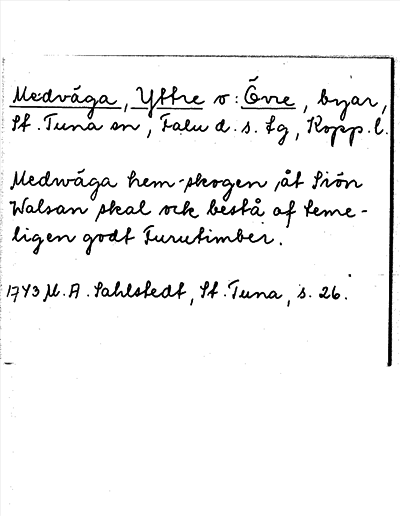 Medväga, Yttre o: Övre, byar,
St. Tuna sn, Falu d. s. lg, Kopp. l.
Medwäga hem-skogen, åt Siön
Walsan skal ock bestå af teme-
ligen godt Furutimber.
1743 M. A. Sahlstedt, St. Tuna, s. 26.